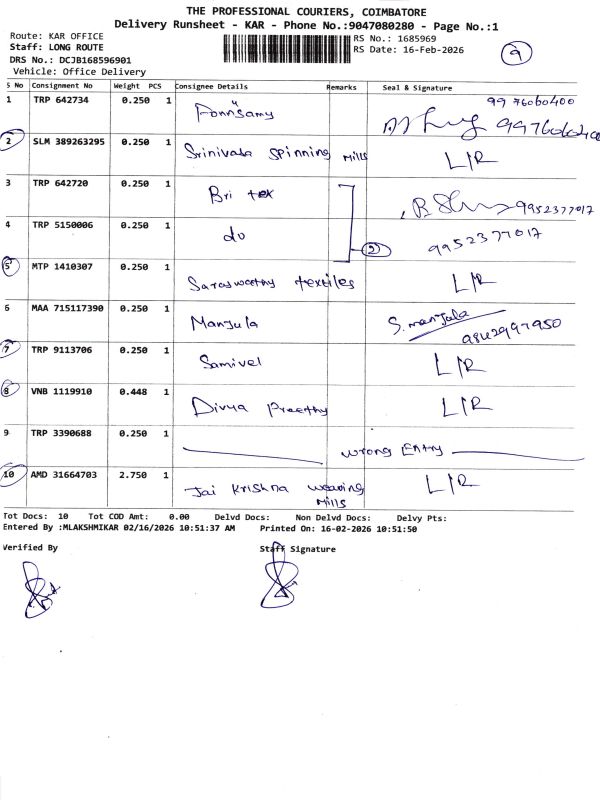 THE PROFESSIONAL COURIERS, COIMBATORE
Delivery Runsheet - KAR - Phone No.:9047080280 - Page No.:1
Route: KAR OFFICE
RS No.: 1685969
Staff: LONG ROUTE
RS Date: 16-Feb-2026
9
DRS No.: DCJB168596901
Vehicle: Office Delivery
S No Consignment No Weight PCS Consignee Details Remarks Seal & Signature
1 TRP 642734 0.250 1 Ponnsamy 9976060400
9976060400
2 SLM 389263295 0.250 1 Srinivasa Spinning Mills L/R
3 TRP 642720 0.250 1 Bri tex 9952377017
4 TRP 5150006 0.250 1 do 2 9952377017
5 MTP 1410307 0.250 1 Saraswathy textiles L/R
6 MAA 715117390 0.250 1 Manjula S. manjala
9842997950
7 TRP 9113706 0.250 1 Samivel L/R
8 VNB 1119910 0.448 1 Divya Preethy L/R
9 TRP 3390688 0.250 1 wrong Entry
10 AMD 31664703 2.750 1 Jai Krishna weaving Mills L/R
Tot Docs: 10 Tot COD Amt: 0.00 Delvd Docs: Non Delvd Docs: Delvy Pts:
Entered By :MLAKSHMIKAR 02/16/2026 10:51:37 AM Printed On: 16-02-2026 10:51:50
Verified By Staff Signature